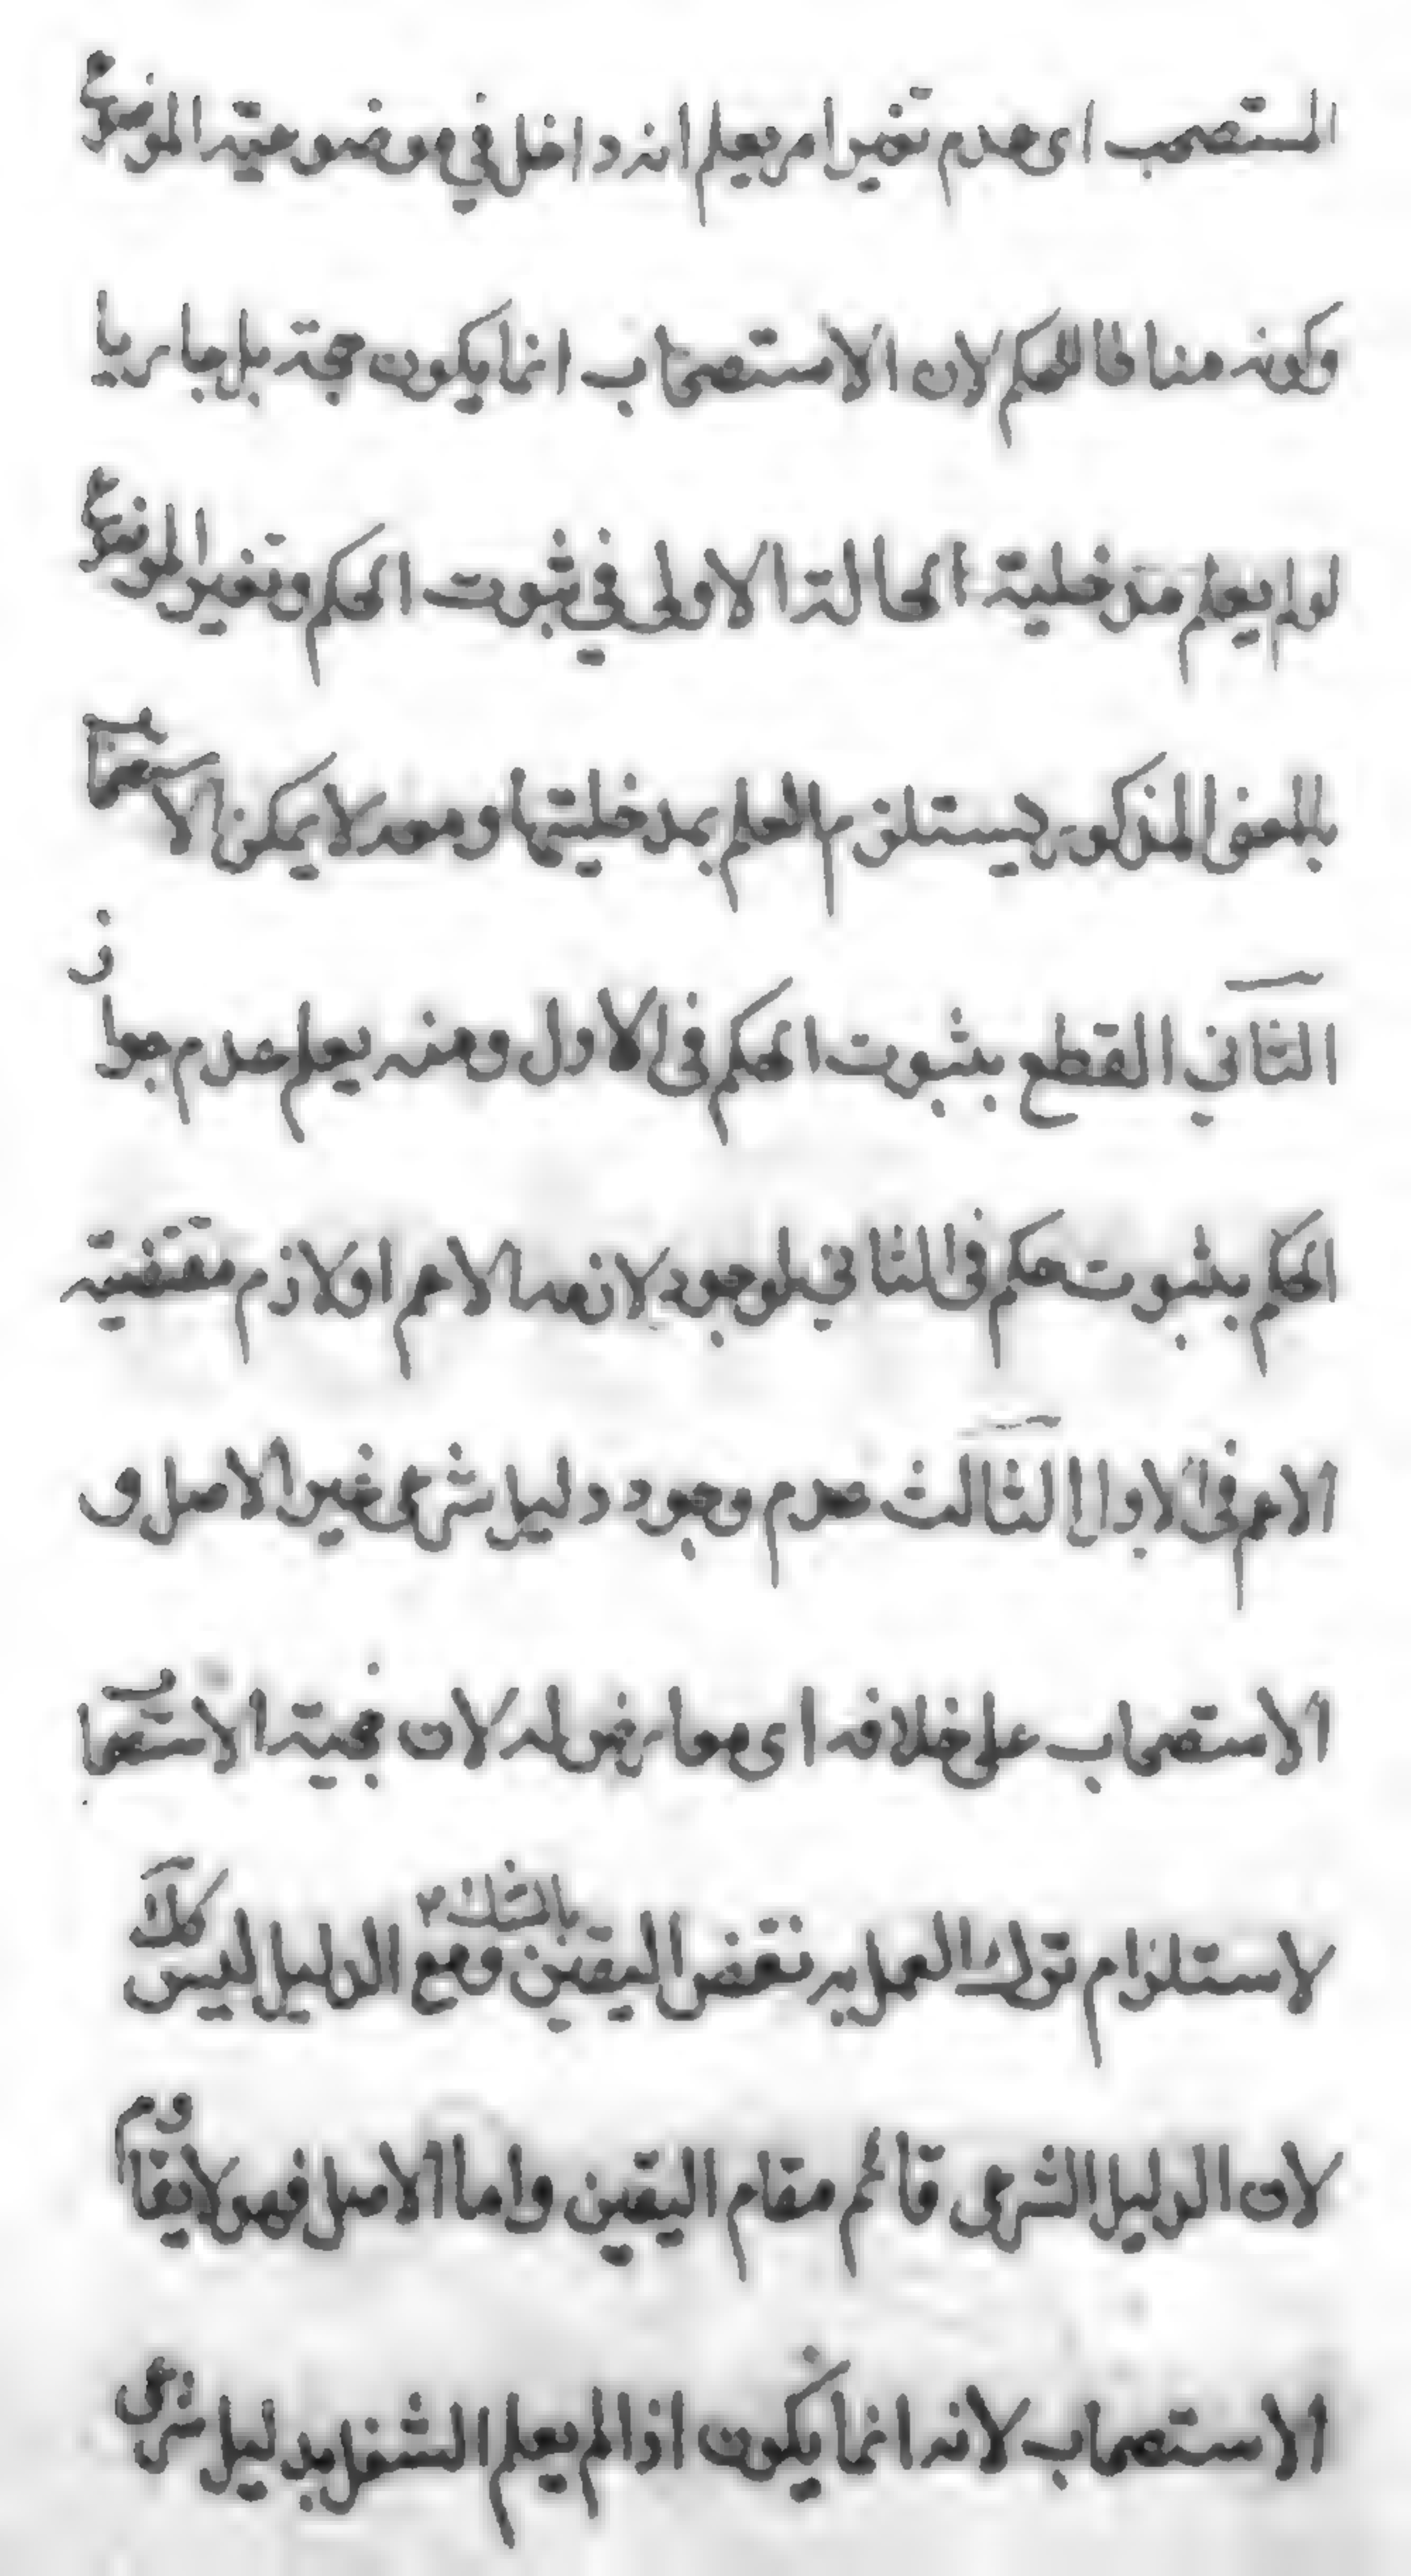 المستصحب اى عدم تغير امر يعلم انه داخل في موضوعية الموضوع
وكونه مناطا للحكم لان الاستصحاب انما يكون حجة بل جاريا
لو لم يعلم مدخلية الحالة الاولى في ثبوت الحكم وتغير الموضوع
بالمعنى المذكور يستلزم العلم بمدخليتها ومعه لا يمكن الاستصحاب
الثاني القطع بثبوت الحكم فى الاول ومنه يعلم عدم جواز
الحكم بثبوت حكم فى الثاني لوجود لانه اما لاعم او لازم مقتضية
الاعم فى الاول الثالث عدم وجود دليل شرعى غير الاصل و
الاستصحاب على خلافه اى معارض له لان حجية الاستصحا
لاستلزام ترك العمل به نقض اليقين بالشك ومع الدليل ليس كك
لان الدليل الشرعى قائم مقام اليقين واما الاصل فهو لا يقاوم
الاستصحاب لانه انما يكون اذا لم يعلم الشغل بدليل شرعى